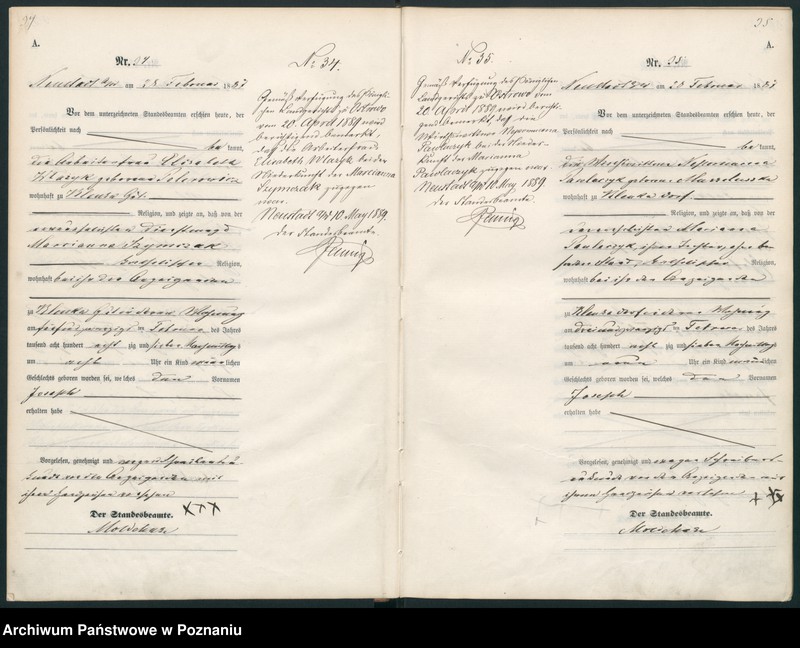 A.
Nr. 34
Neustadt a/W am 28 Februar 1887
Vor dem unterzeichneten Standesbeamten erschien heute, der
Persönlichkeit nach
be kannt,
die Arbeiterfrau Elisabeth
geborene
wohnhaft zu Klenka Gut
Religion, und zeigte an, daß von der
unverehelichten Dienstmagd
Marianna Szymczak
katholischer Religion,
wohnhaft bei der Anzeigenden
zu Klenka Gut in deren Wohnung
am Februar des Jahres
tausend acht hundert acht zig und sieben Vormittags
um acht Uhr ein Kind männlichen
Geschlechts geboren worden sei, welches den Vornamen
Joseph
erhalten habe
Vorgelesen, genehmigt und wegen Schreibens
von der Anzeigenden mit
ihrem Handzeichen versehen
XXX
Der Standesbeamte.
No 34.
Gemäß Verfügung des Königli-
chen Landgerichts zu Ostrowo
vom 20. April 1889 wird
berichtigend bemerkt,
daß die Arbeiterfrau
Elisabeth Wlazyk bei der
Niederkunft der Marianna
Szymczak zugegen
war.
Neustadt a/W 10. May 1889.
Der Standesbeamte
No 35.
Gemäß Verfügung des Königlichen
Landgerichts zu Ostrowo vom
20. April 1889 wird berichti-
gend bemerkt, daß die
Nepomucena
Pawlaczyk bei der Nieder-
kunft der Marianna
Pawlaczyk zugegen war.
Neustadt a/W 10. May 1889.
Der Standesbeamte.
35.
A.
Nr. 35
Neustadt a/W am 28 Februar 1887
Vor dem unterzeichneten Standesbeamten erschien heute, der
Persönlichkeit nach
be kannt,
die Nepomucena
Pawlaczyk geborene
wohnhaft zu Klenka Dorf
Religion, und zeigte an, daß von der
unverehelichten Marianna
Pawlaczyk, ihrer Tochter,
katholischer Religion,
wohnhaft bei der Anzeigenden
zu Klenka Dorf in deren Wohnung
am Februar des Jahres
tausend acht hundert acht zig und sieben Vormittags
um neun Uhr ein Kind männlichen
Geschlechts geboren worden sei, welches den Vornamen
Joseph
erhalten habe
Vorgelesen, genehmigt und wegen Schreibens
von der Anzeigenden mit
ihrem Handzeichen versehen
Der Standesbeamte.
Archiwum Państwowe w Poznaniu